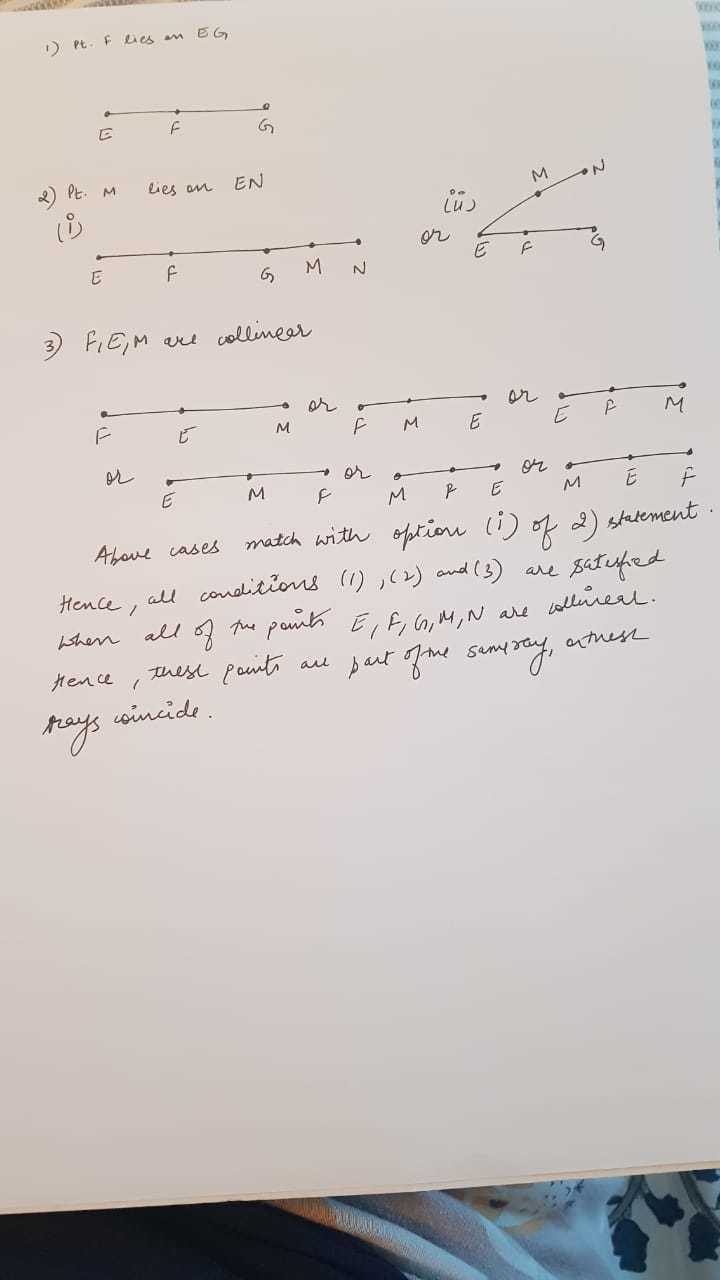 1) Pt. F lies on EG
E F G
2) Pt. M lies on EN
(i)
E F G M N
or (ii)
M N
E F G
3) F, E, M are collinear
F E M or F M E or E F M
or E M F or M F E or M E F
Above cases match with option (i) of 2) statement.
Hence, all conditions (1), (2) and (3) are satisfied
when all of the points E, F, G, M, N are collinear.
Hence, these points are part of the same ray, or these
rays coincide.